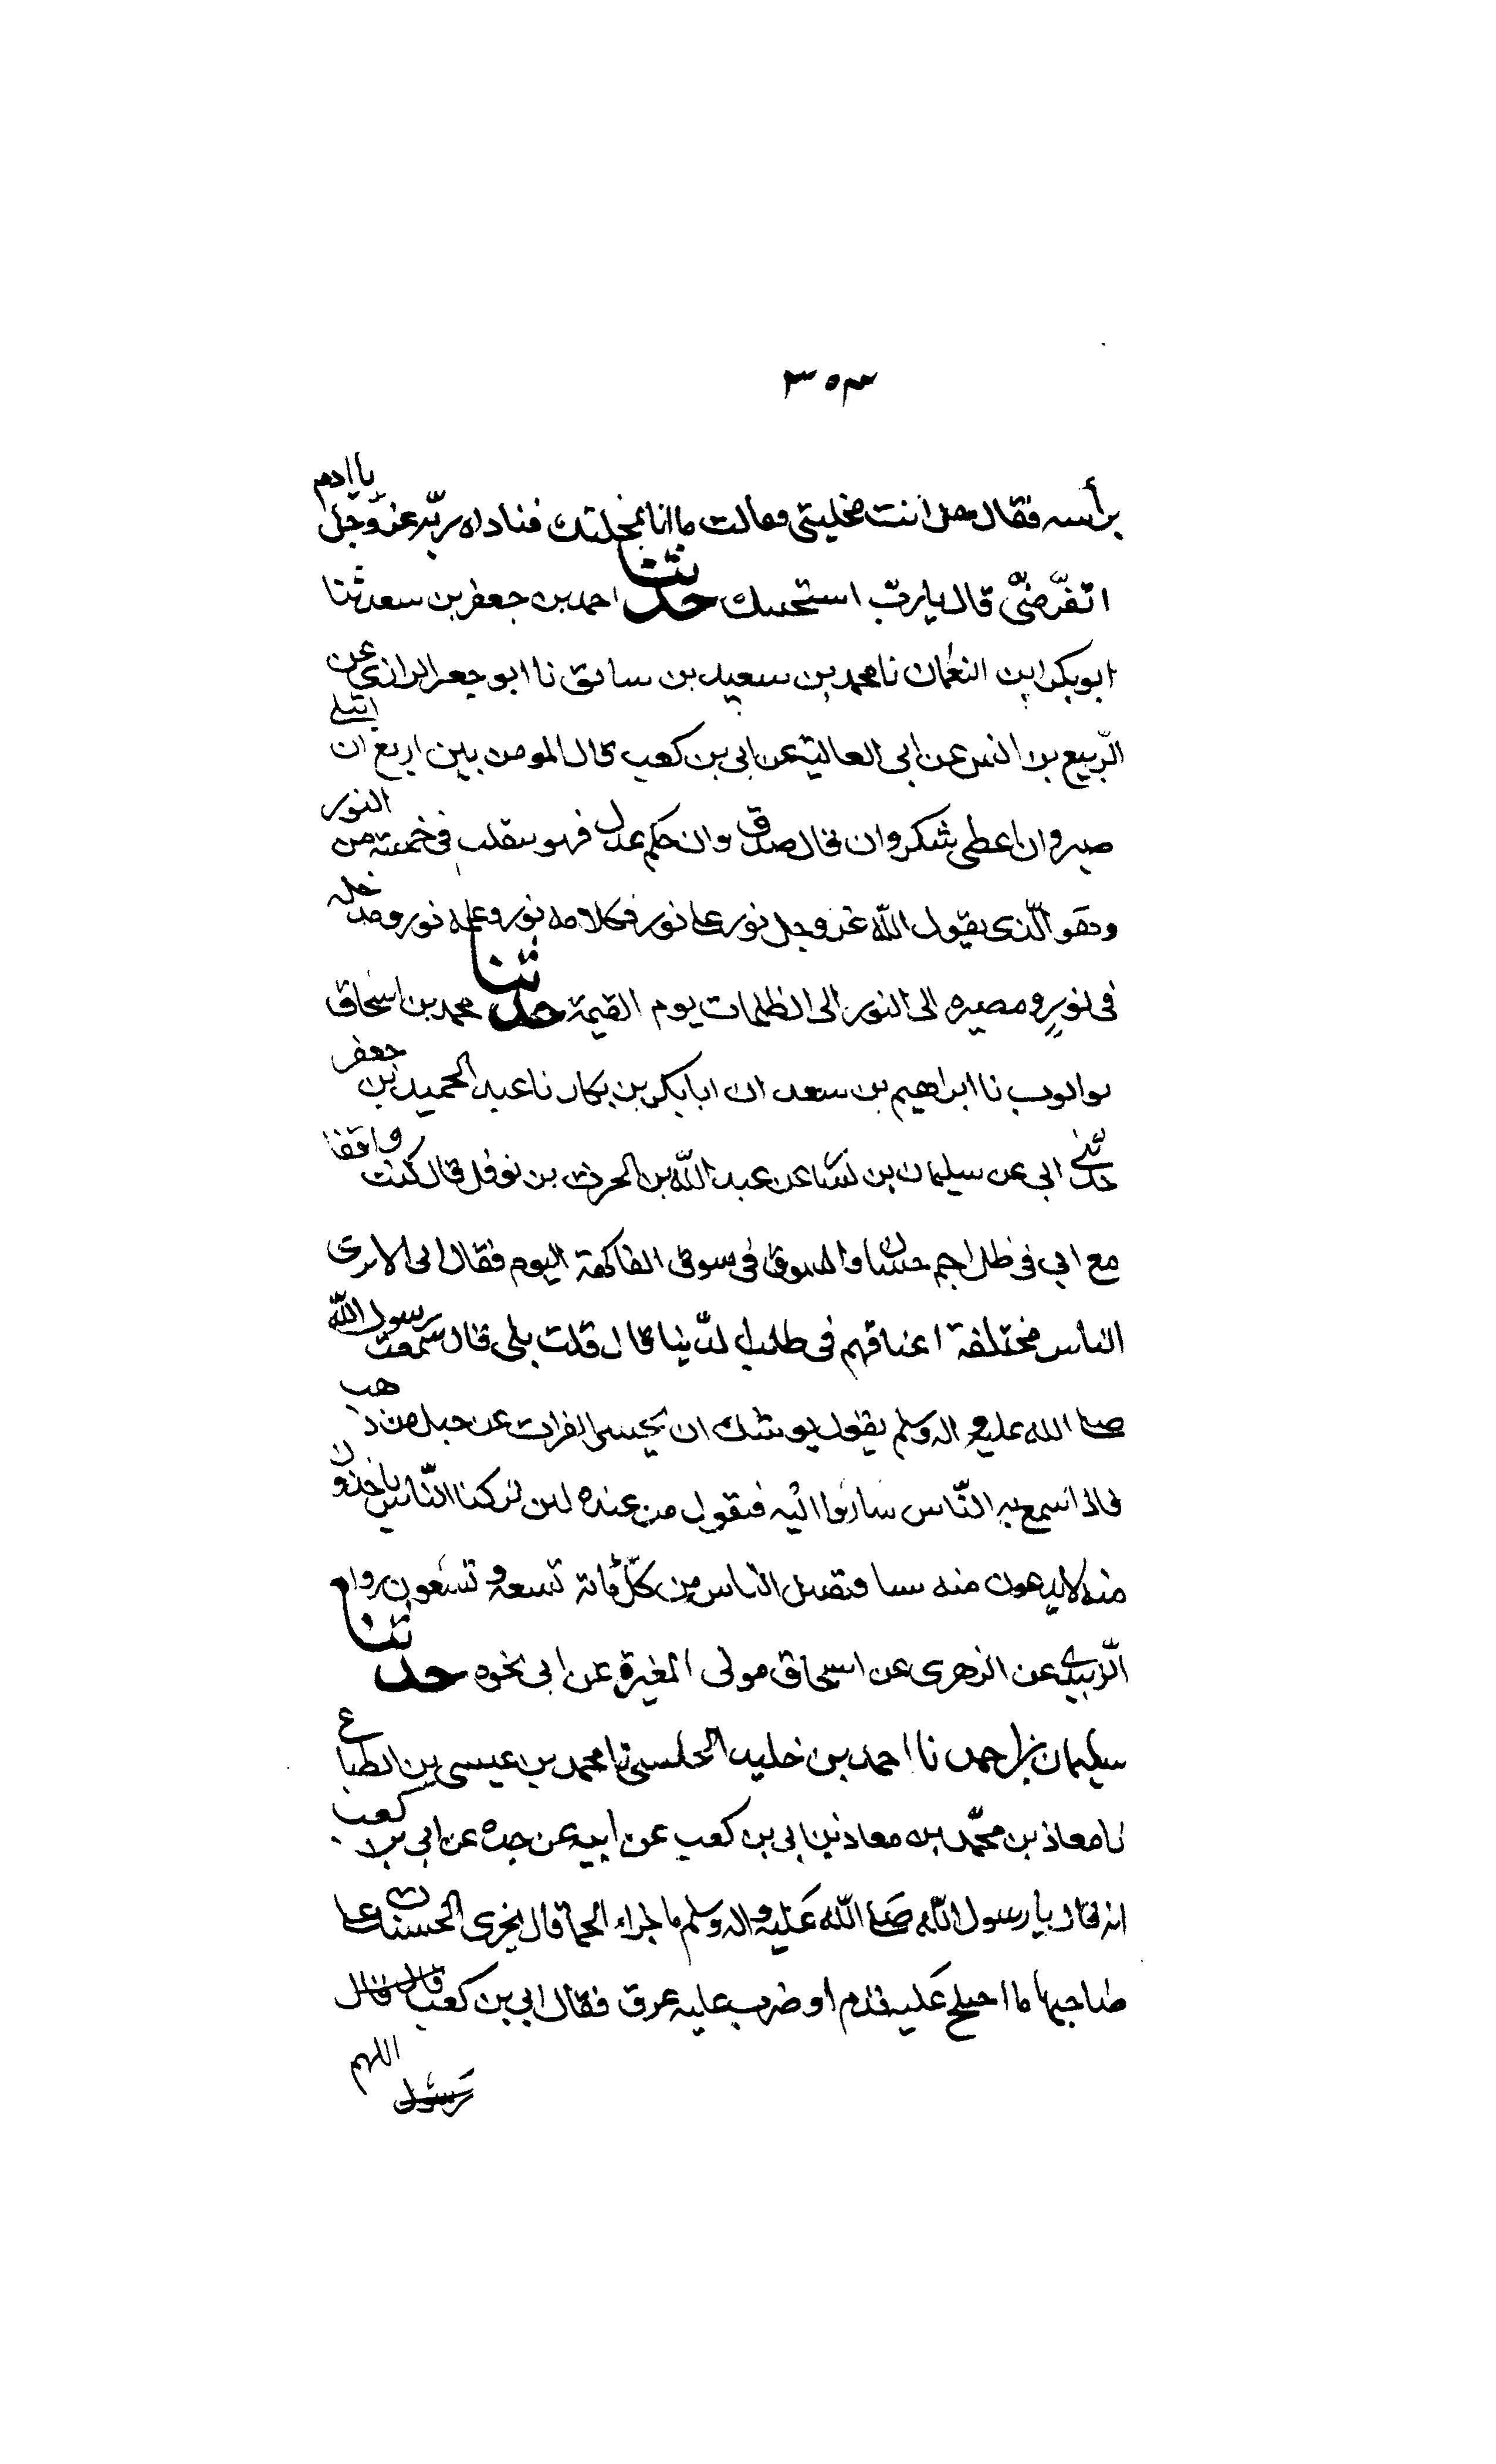 ٣٥٣
برأسه فقال هل انت مخليتى فقالت ما انا بمخليتك فناداه ربّه عزّ وجلّ يا ادم
اتفرّ منّى قال يا ربّ استحييتك حدثنا احمد بن جعفر بن سعد ثنا
ابوبكر ابن النعمان نا محمد بن سعيد بن سابق نا ابو جعفر الرازى عن
الرّبيع بن انس عن ابى العالية عن ابى بن كعب قال المومن بين اربع ان ابتلى
صبر وان اعطى شكر وان قال صدق وان حكم عدل فهو يتقلب فى خمسة من النور
وهو الّذى يقول اللّه عز وجل نور على نور فكلامه نور وعلمه نور ومدخله
فى نور ومصيره الى النور الى الظلمات يوم القيمة حدثنا محمد بن اسحاق
بن ايوب نا ابراهيم بن سعد ان ابا بكر بن بكار نا عبد الحميد ابن جعفر
حدثنى ابى عن سليمان بن يسار عن عبد اللّه بن الحرث بن نوفل قال كنت واقفا
مع ابي فى ظل اجم حسان والسوق فى سوق الفاكهة اليوم فقال ابى الا ترى
الناس مختلفة اعناقهم فى طلب الدّنيا قال قلت بلى قال سمعت رسول اللّه
صلى الله عليه و اله وسلم يقول يوشك ان يحسر الفرات عن جبل من ذهب
فاذا سمع به النّاس ساروا اليه فيقول من عنده لئن تركنا النّاس ياخذون
منه لا يدعون منه شيا فيقتل الناس من كلّ مائة تسعة و تسعون رواه
الزّبيدى عن الزهرى عن اسحاق مولى المغيرة عن ابى نحوه حدثنا
سليمان بن احمد نا احمد بن خليد الحلبى نا محمد بن عيسى بن الطباع
نا معاذ بن محمّد بن معاذ بن ابى بن كعب عن ابيه عن جده عن ابى بن كعب
انه قال يا رسول اللّه صلى اللّه عليه و اله وسلم ما جزاء الحما قال يجرى الحسنات على
صاحبها ما اختلج عليه قدم او ضرب عليه عرق فقال ابى بن كعب قال قال
اللهم
رسول